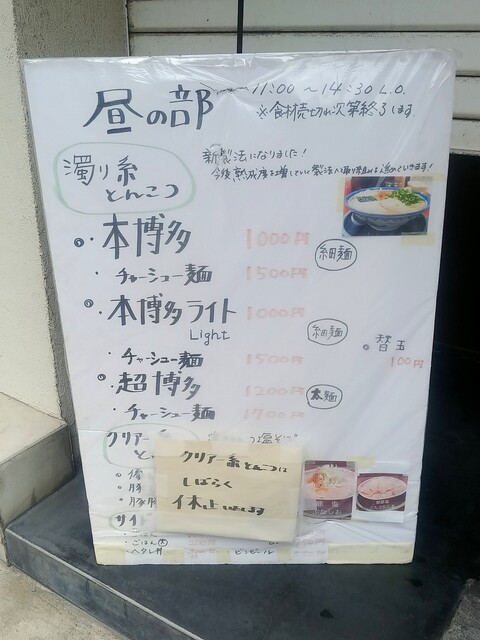 昼の部
11:00 ～ 14:30 L.O.
※食材売切れ次第終了します
濁り系
とんこつ
新製法になりました!
本博多 1000円 細麺
・チャーシュー麺 1500円
本博多ライト 1000円 細麺
Light
・チャーシュー麺 1500円
替玉
100円
超博多 1200円 太麺
・チャーシュー麺 1700円
クリアー系
クリアー系とんこつは
しばらく
休止いたします
サイ
ごはん